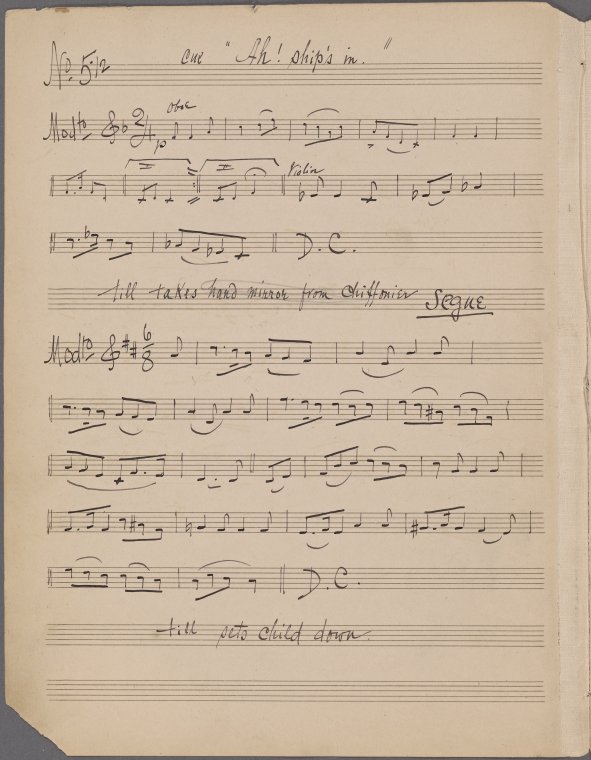 No. 5½ cue "Ah! ship's in."
Oboe
Modto 2/4 p
I II Violin
D.C.
till takes hand mirror from chiffonier Segue
Modto 6/8
D.C.
till sets child down.